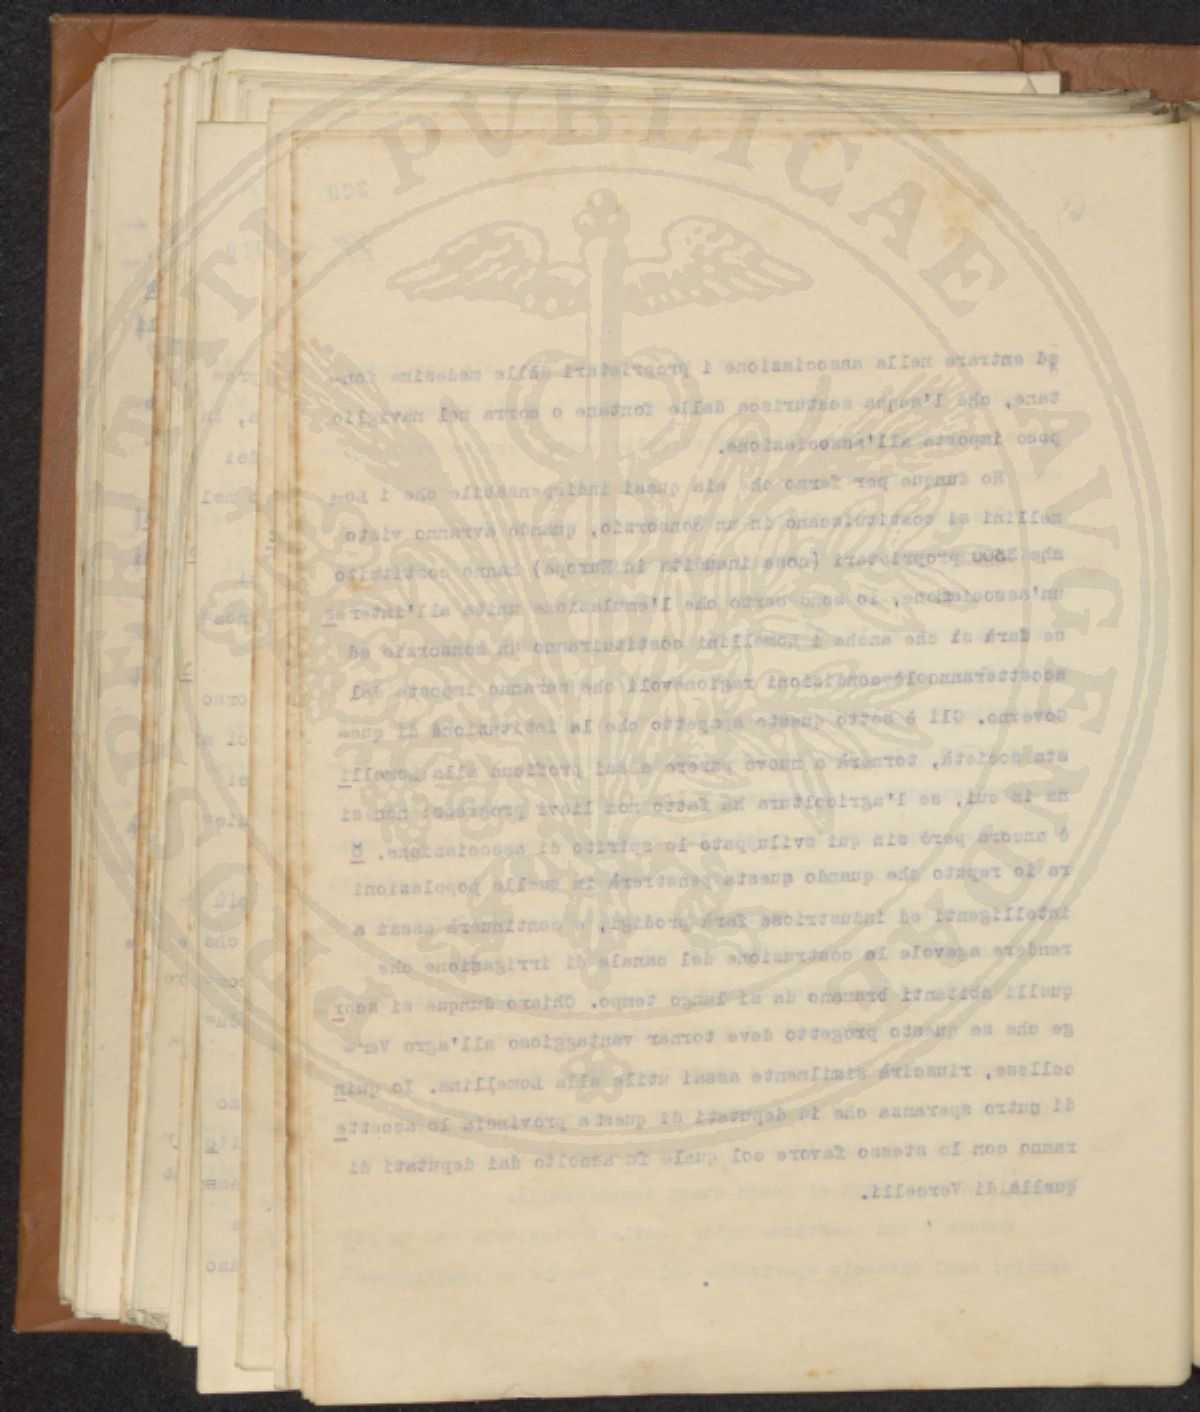 PROSPERITATI PUBLICAE AVGENDAE
329
ed entrare nella associazione i proprietari dalle medesime fon-
tane, che l'acqua scaturisca dalle fontane o corra nel naviglio
poco importa all'associazione.
Ho dunque per fermo che sia quasi indispensabile che i Lo-
mellini si costituiscano in un consorzio, quando avranno visto
che 3500 proprietari (cosa inaudita in Europa) hanno costituito
un'associazione, io sono certo che l'emulazione unita all'interes
se farà sì che anche i Lomellini costituiranno un consorzio ed
accetteranno le condizioni ragionevoli che saranno imposte dal
Governo. Gli è sotto questo aspetto che la istituzione di que-
sta società, tornerà a nuovo parere assai proficua alla Lomelli
na in cui, se l'agricoltura ha fatto non lievi progressi non si
è ancora però sin qui sviluppato lo spirito di associazione. O
ra io reputo che quando questa penetrerà in quelle popolazioni
intelligenti ed industriose farà prodigi, e continuerà assai a
rendere agevole la costruzione del canale di irrigazione che
quelli abitanti bramano da sì lungo tempo. Chiaro dunque si scor
ge che se questo progetto deve tornar vantaggioso all'agro Ver-
cellese, riuscirà similmente assai utile alla Lomellina. Io quin
di nutro speranza che i deputati di questa provincia lo accette
ranno con lo stesso favore col quale fu accolto dai deputati di
quella di Vercelli.